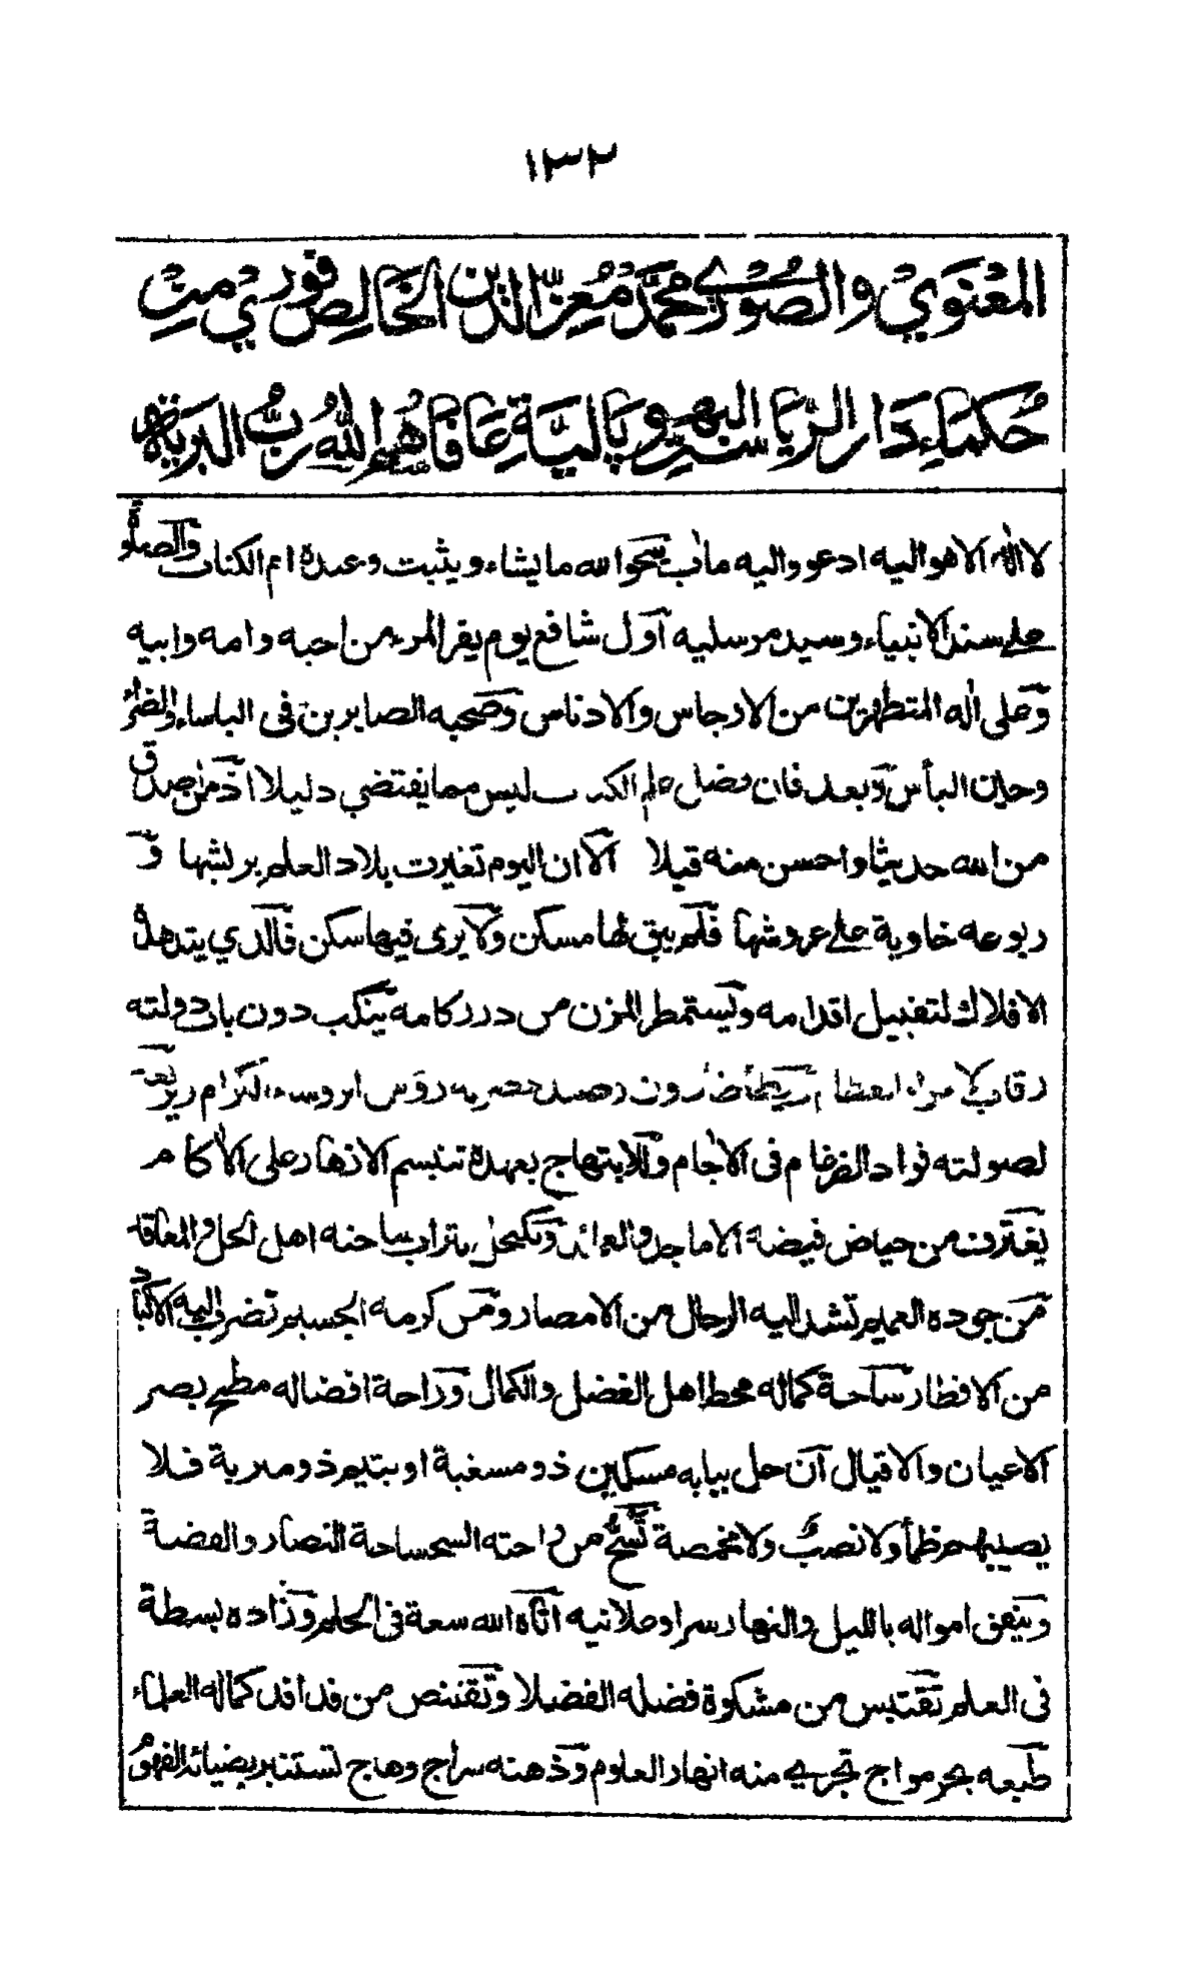 ١٣٢
المَعْنَوِيْ وَالصُّوْرِيْ مُحَمَّدْ مُعِزُّ الدِّيْنِ الخَالِصْ فُوْرِيْ مِنْ
حُكَمَاءِ دَارِ الرِّيَاسَةِ البهوپَالِيَّةِ عَافَاهُمُ اللّٰهُ رَبُّ البَرِيَّةِ
لا اله الا هو اليه ادعو واليه ماٰب يمحوا الله ما يشاء ويثبت وعنده ام الكتاب والصلوة
على سند الانبياء وسيد مرسليه اول شافع يوم يفر المرء من اخيه وامه وابيه
وعلى اٰله المتطهرين من الارجاس والادناس وصحبه الصابرين فى الباساء والضراء
وحين البأس وبعد فان فضل علم ليس مما يقتضي دليلا اذ من اصدق
من الله حديثا واحسن منه قيلا الا ان اليوم تغيرت بلاد العلم برلشها و
ربوعه خاوية على عروشها فلم يبق لها مسكن ولا يرى فيها سكن فالذي يتدهده
الافلاك لتقبيل اقدامه ويستمطر المزن من درر كامه ينكب دون باب دولته
رقاب الكرام
لصولته فواد الضرغام فى الاٰجام وللابتهاج بعهده تبتسم الازهار على الاٰكام
يغترف من حياض فيضه الاماجد والعوائد وتكتحل بتراب ساحته اهل الحل والمعاقد
من جوده العميم تشد اليه الرحال من الامصار ومن كرمه الجسيم تضرب اليه الاكباد
من الاقطار ساحة كماله محط اهل الفضل والكمال وراحة افضاله مطمح بصر
الاعيان والاقيال ان حل ببابه مسكين ذو مسغبة او يتيم ذو متربة فلا
يصيبهم ظمأ ولا نصب ولا مخمصة تسح من راحته السحساحة النضار والفضة
وينفق امواله بالليل والنهار سرا وعلانيه اتاه الله سعة فى الحلم وزاده بسطة
فى العلم تقتبس من مشكوة فضله الفضلا وتقتنص من فدافد كماله العلماء
طبعه بحر مواج تجري منه انهار العلوم وذهنه سراج وهاج تستنير بضيائه الفهوم